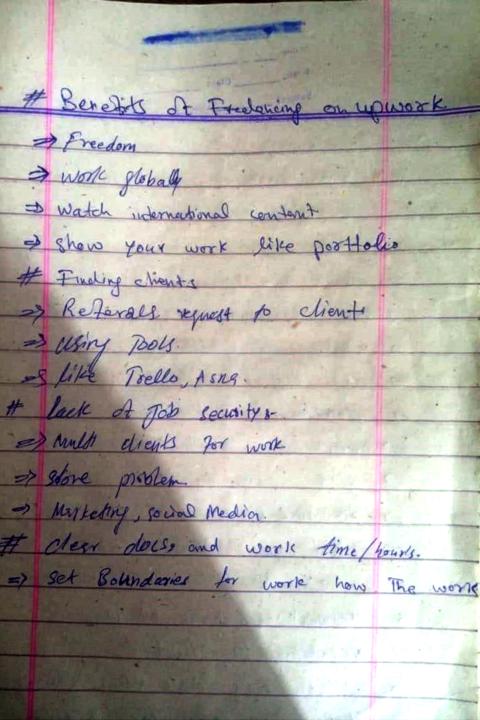 # Benefits of Freelancing on upwork
⇒ Freedom
⇒ work globally
⇒ watch international content
⇒ show your work like portfolio
# Finding clients
⇒ Referals request to client
⇒ using Tools.
⇒ like Trello, Asna.
# lack of Job security
⇒ multi clients for work
⇒ store problem
⇒ Marketing, social Media.
# clear docs, and work time/hours.
⇒ set Boundaries for work how The work